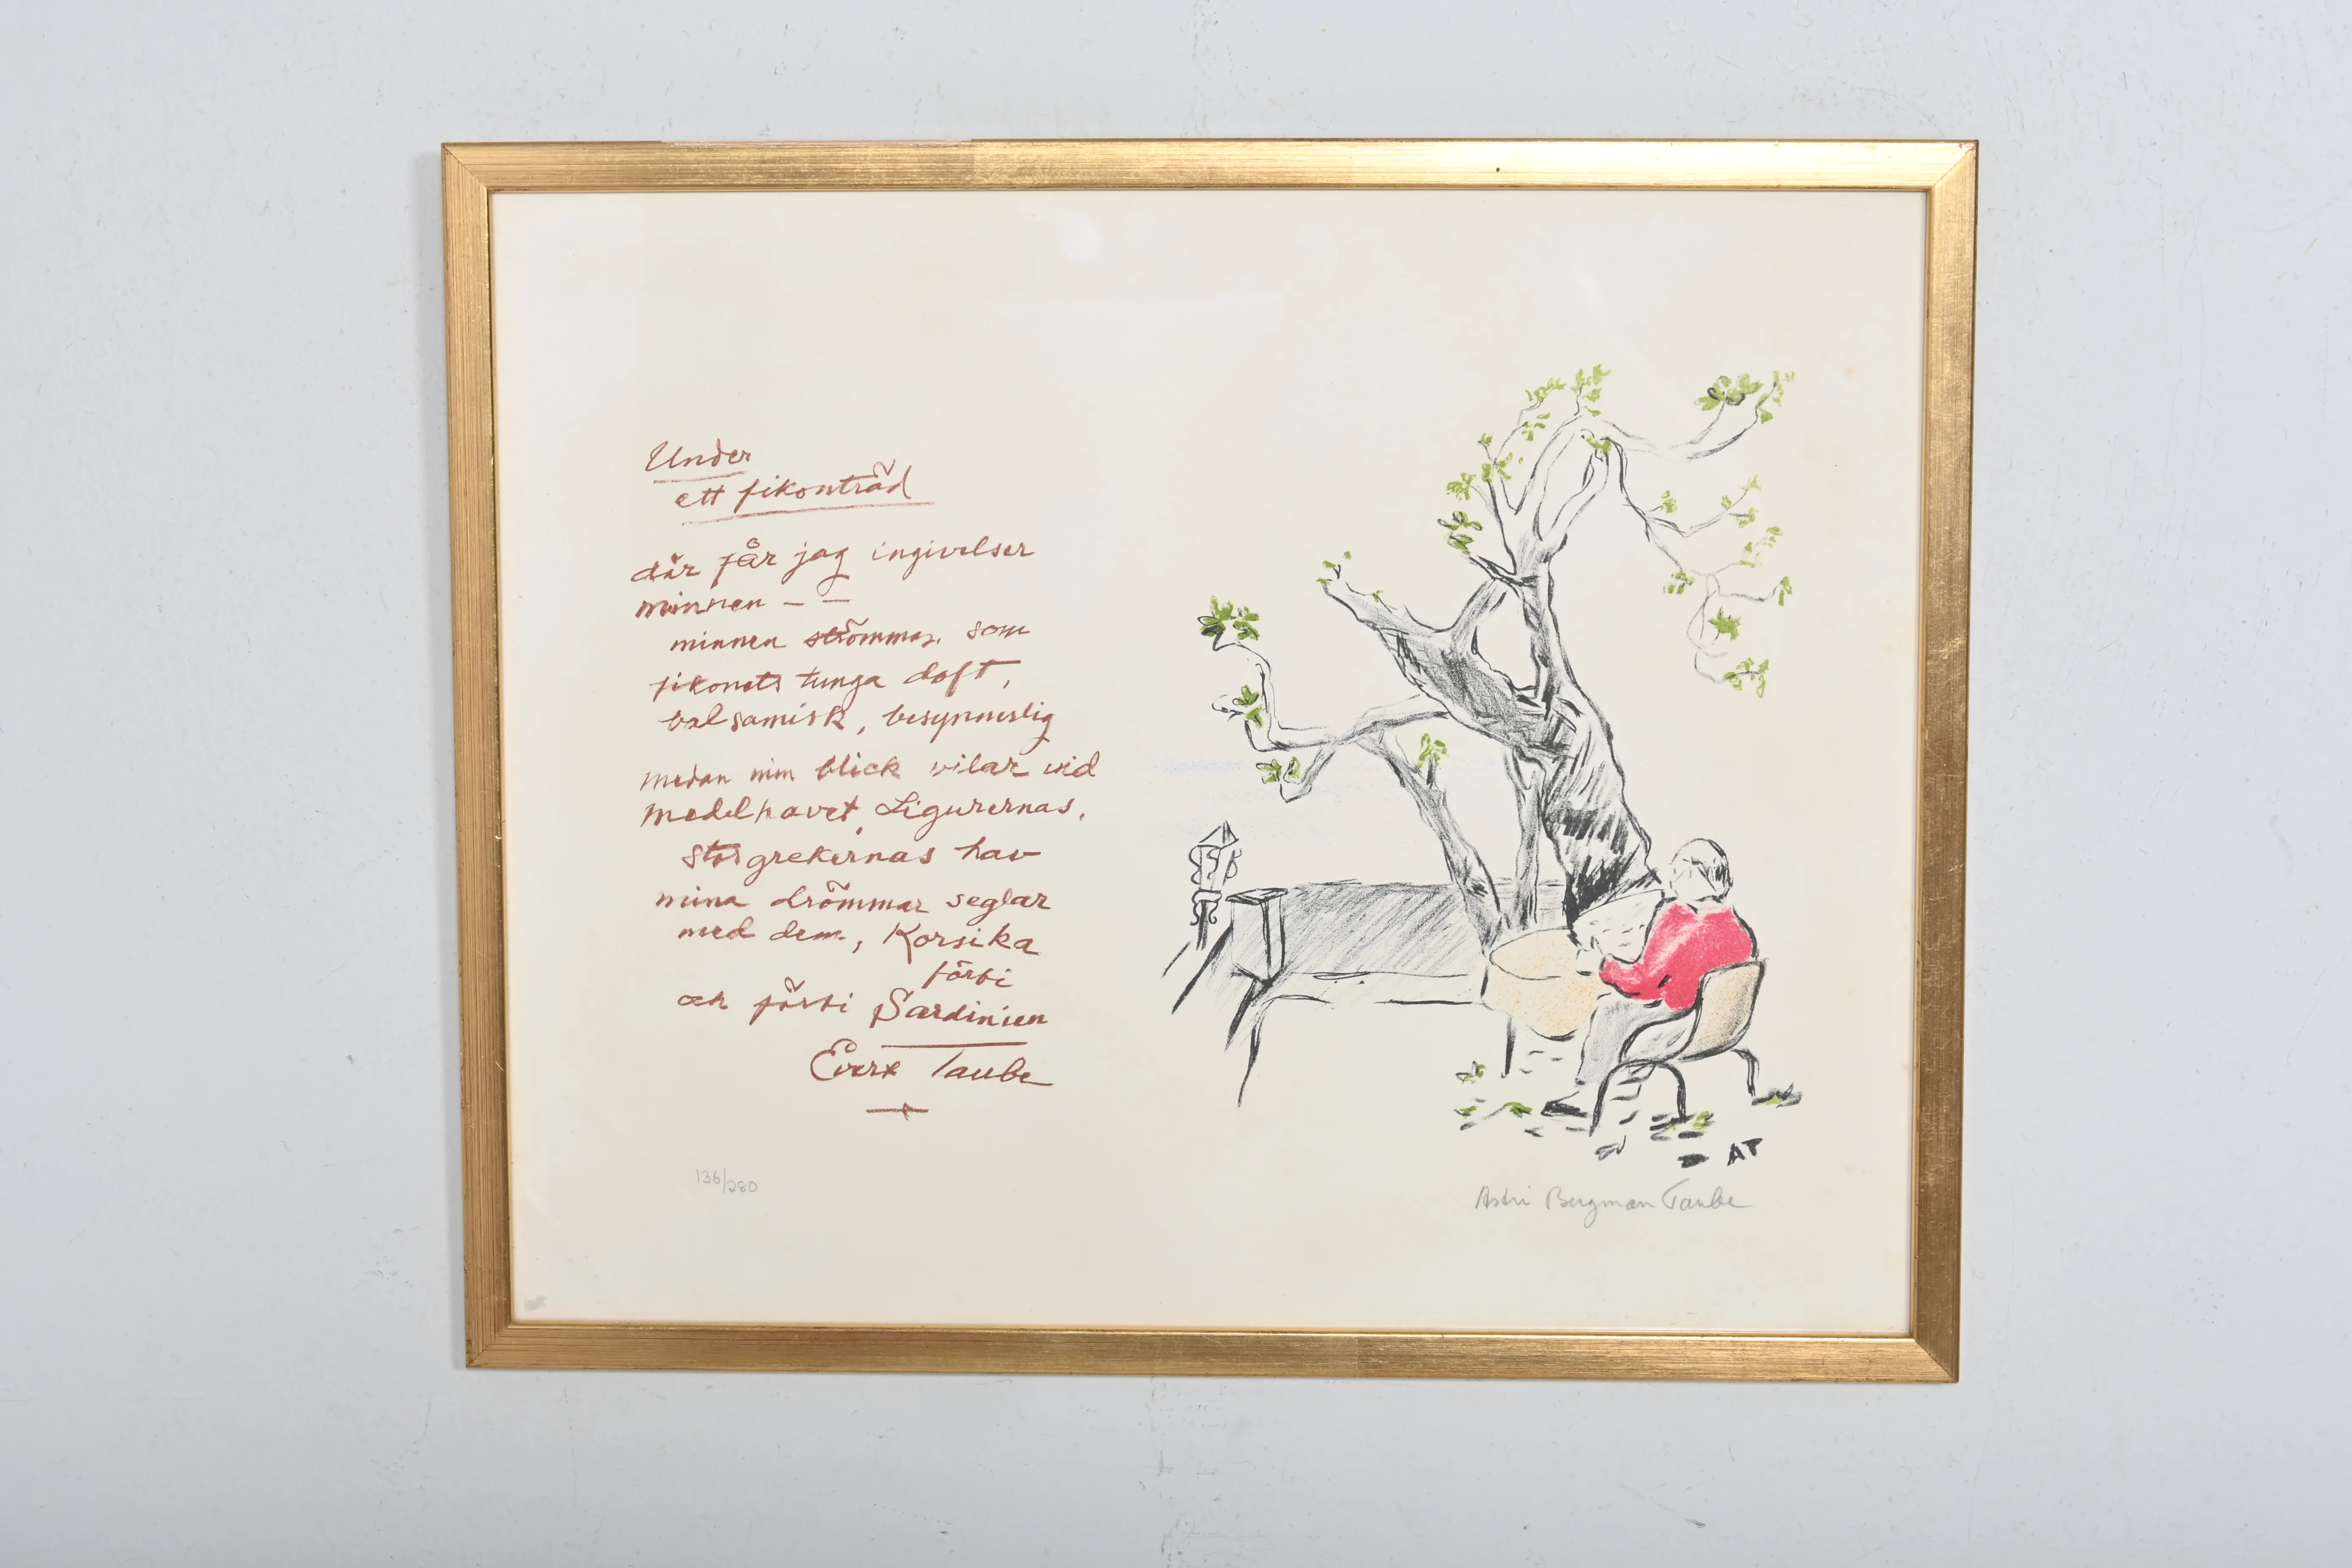 Under
ett fikonträd
där får jag ingivelser
minnen – –
minnen strömmar som
fikonets tunga doft,
balsamisk, besynnerlig
medan min blick vilar vid
medelhavet, Ligurernas,
storgrekernas hav
mina drömmar seglar
med dem, Korsika
förbi
och förbi Sardinien
Evert Taube
136/280
AT
Astri Bergman Taube